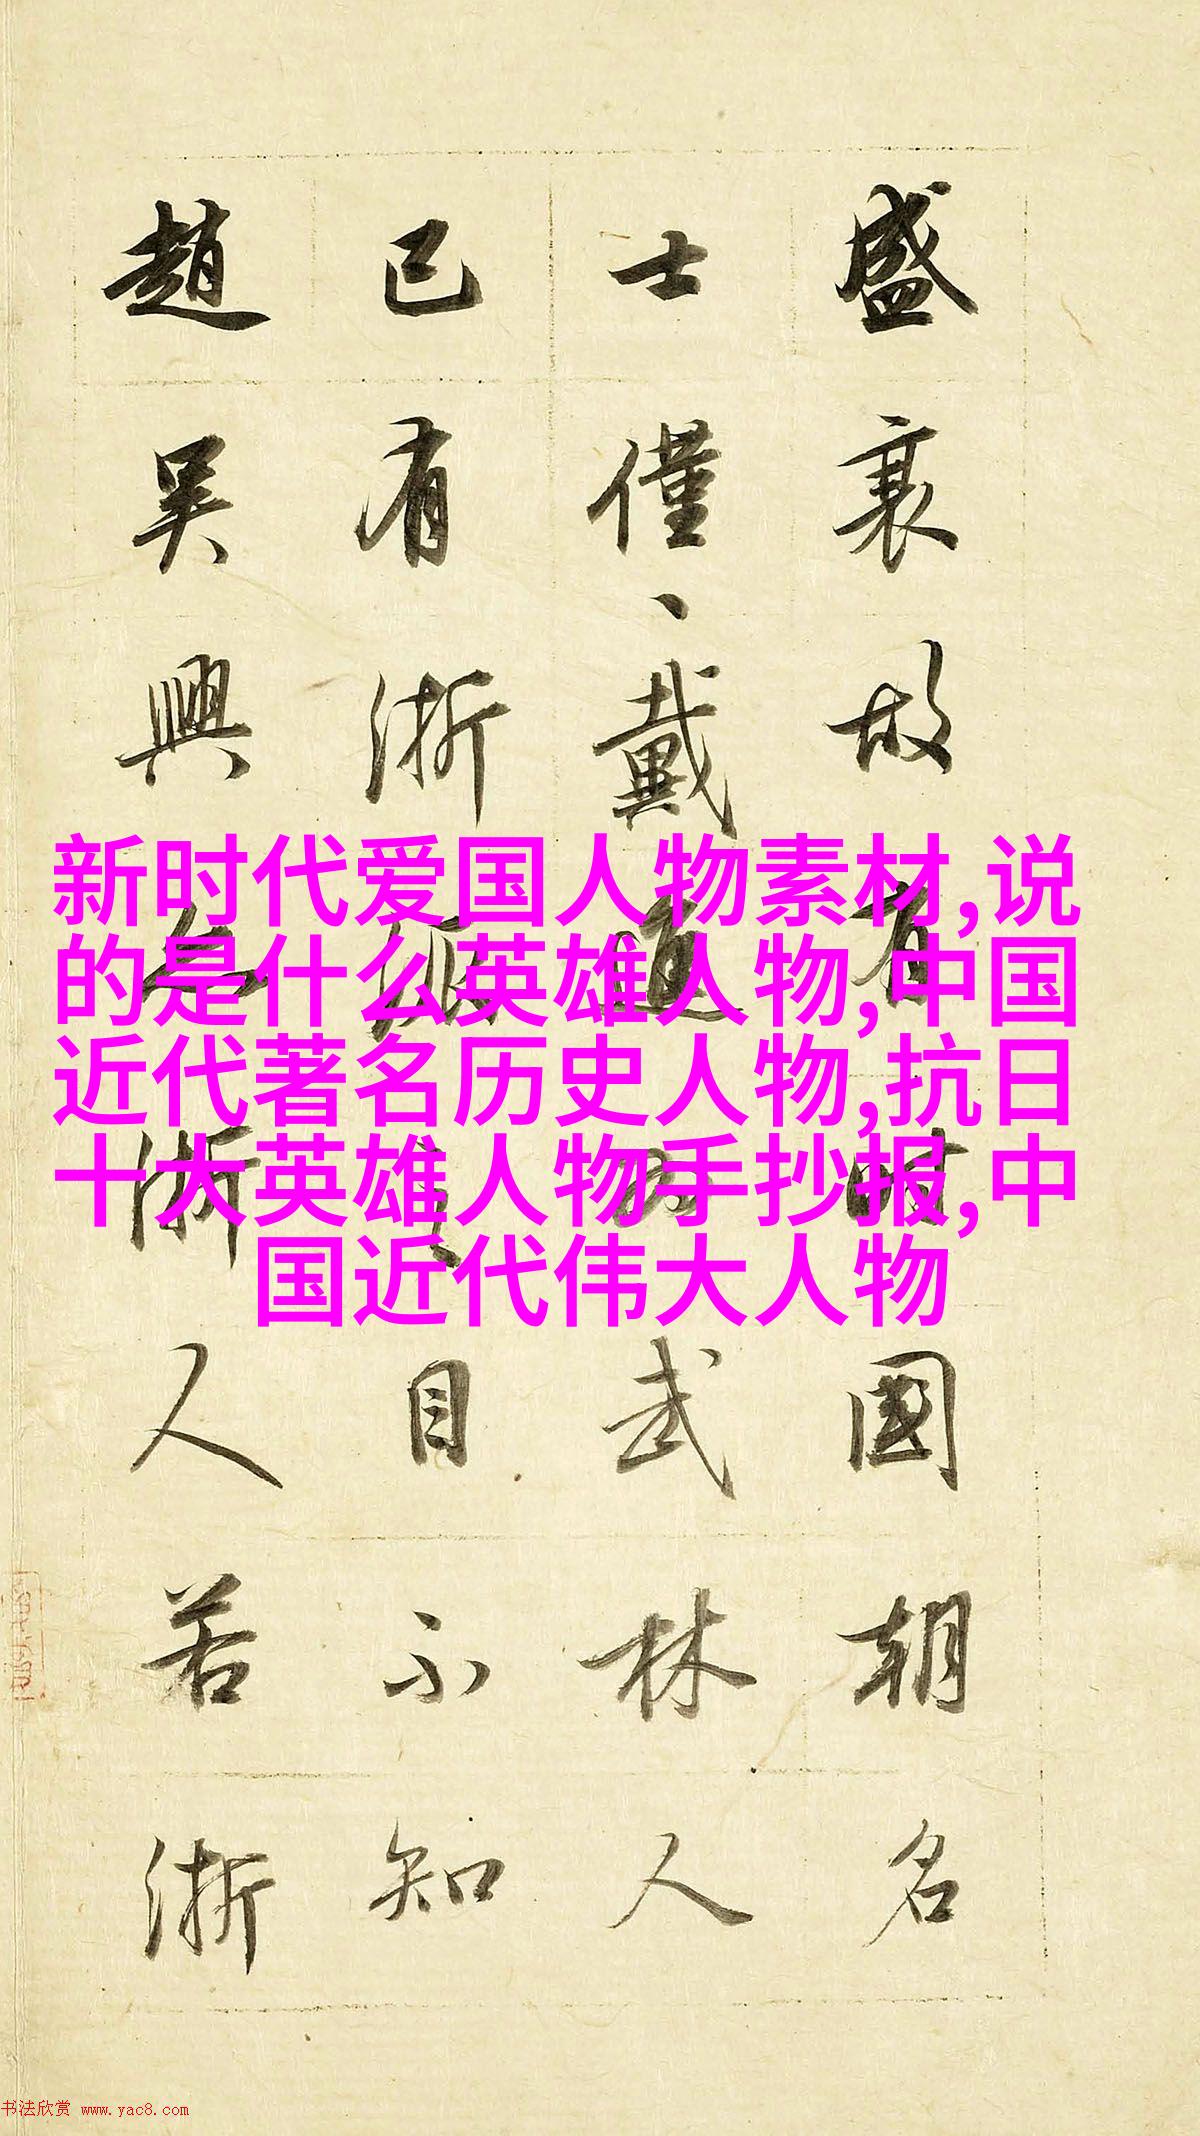 盛衰故有時國朝名
士僅、戴進為武林人
已有浙派之目不知
趙吴興亦浙人若浙
新时代爱国人物素材,说
的是什么英雄人物,中国
近代著名历史人物,抗日
十大英雄人物手抄报,中
国近代伟大人物
书法欣赏 www.yac8.com